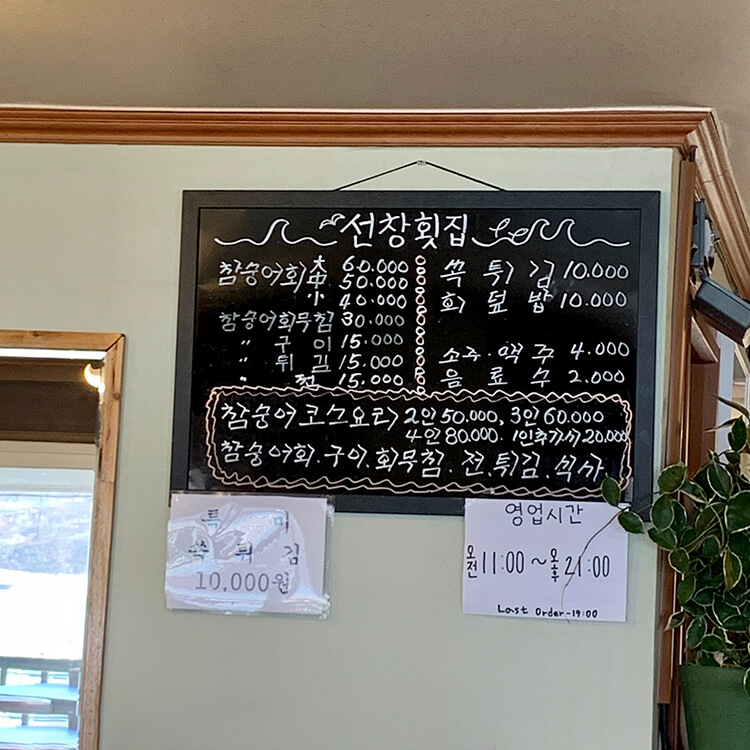 선창횟집
참숭어회 大 60.000
中 50.000
小 40.000
참숭어회무침 30.000
" 구이 15.000
" 튀김 15.000
" 전 15.000
쑥튀김 10.000
회덮밥 10.000
소주·맥주 4.000
음료수 2.000
참숭어코스요리 2인 50.000, 3인 60.000
4인 80.000. 1인추가시 20.000
참숭어회.구이.회무침.전.튀김.식사
특미
쑥튀김
10,000원
영업시간
오전 11:00 ~ 오후 21:00
Last Order-19:00